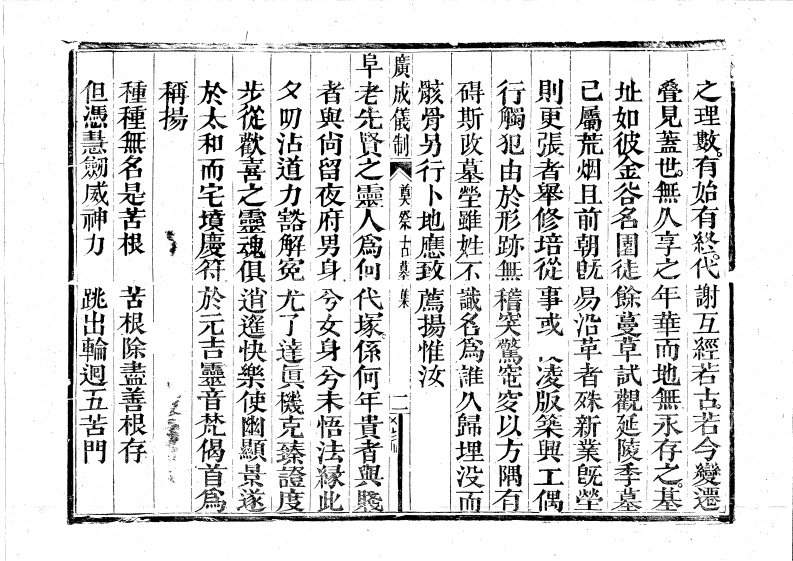 之理數有始有終代謝互經若古若今變遷
叠見蓋世無久享之年華而地無永存之基
址如彼金谷名園徒餘蔓草試觀延陵季墓
已屬荒烟且前朝旣易沿革者殊新業旣塋
則更張者舉修培從事或 凌版築興工偶
行觸犯由於形跡無稽突驚窀穸以方隅有
碍斯改墓塋雖姓不識名爲誰久歸埋没而
骸骨另行卜地應致薦揚惟汝
廣成儀制 奠祭古墓集 二
阜老先賢之靈人爲何代塚係何年貴者與賤
者與尙留夜府男身兮女身兮未悟法緣此
夕叨沾道力豁解寃尤了達眞機克臻證度
步從歡喜之靈魂俱逍遙快樂使幽顯景遂
於太和而宅墳慶符於元吉靈音梵偈首爲
稱揚
種種無名是苦根 苦根除盡善根存
但憑慧劒威神力 跳出輪迴五苦門